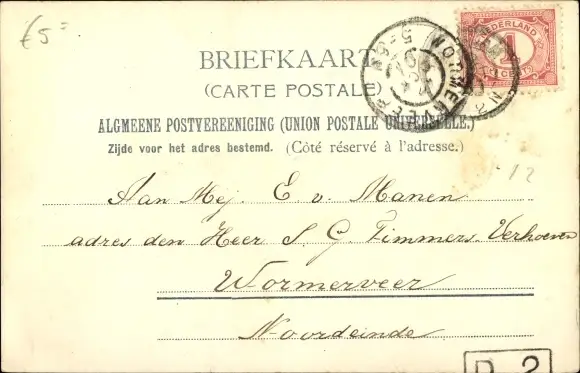 £5=
NEDERLAND
1
CENT
BRIEFKAART
(CARTE POSTALE)
WORMERVEER
ALGMEENE POSTVEREENIGING (UNION POSTALE UNIVERSELLE.)
Zijde voor het adres bestemd. (Côté réservé à l'adresse.)
12
Aan Mej. E. v. Manen
adres den Heer S. G. Timmers Verhoeven
Wormerveer
Noordeinde
D 2